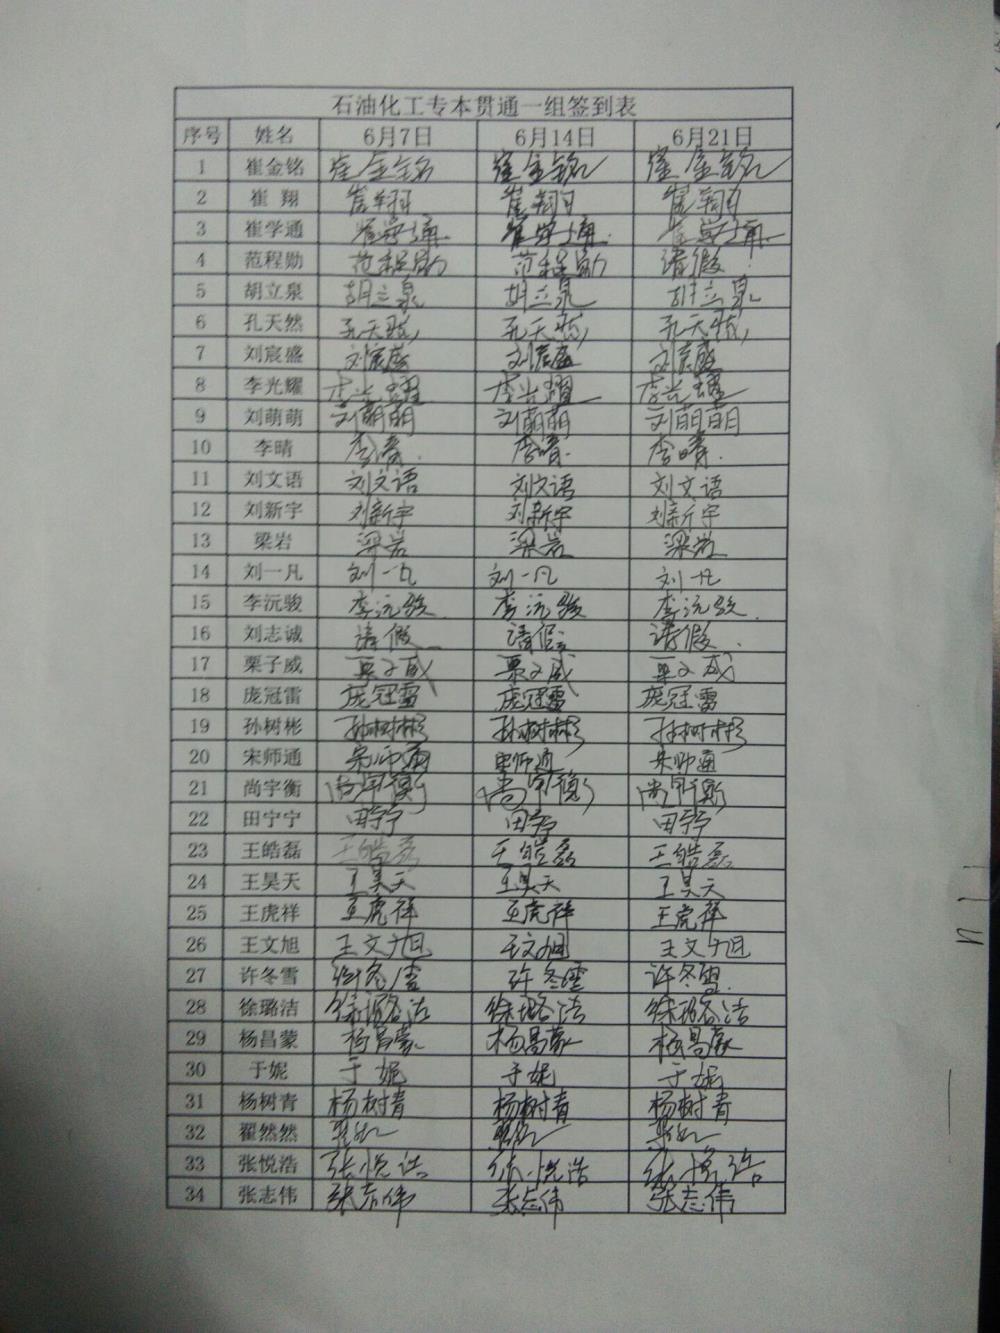 石油化工专本贯通一组签到表
序号 姓名 6月7日 6月14日 6月21日
1 崔金铭 崔金铭 崔金铭 崔金铭
2 崔翔 崔翔 崔翔 崔翔
3 崔学通 崔学通 崔学通 崔学通
4 范程勋 范程勋 范程勋 请假
5 胡立泉 胡立泉 胡立泉 胡立泉
6 孔天然 孔天然 孔天然 孔天然
7 刘宸盛 刘宸盛 刘宸盛 刘宸盛
8 李光耀 李光耀 李光耀 李光耀
9 刘萌萌 刘萌萌 刘萌萌 刘萌萌
10 李晴 李晴 李晴 李晴
11 刘文语 刘文语 刘文语 刘文语
12 刘新宇 刘新宇 刘新宇 刘新宇
13 梁岩 梁岩 梁岩 梁岩
14 刘一凡 刘一凡 刘一凡 刘一凡
15 李沅骏 李沅骏 李沅骏 李沅骏
16 刘志诚 请假 请假 请假
17 栗子威 栗子威 栗子威 栗子威
18 庞冠雷 庞冠雷 庞冠雷 庞冠雷
19 孙树彬 孙树彬 孙树彬 孙树彬
20 宋师通 宋师通 宋师通 宋师通
21 尚宇衡 尚宇衡 尚宇衡 尚宇衡
22 田宁宁 田宁宁 田宁宁 田宁宁
23 王皓磊 王皓磊 王皓磊 王皓磊
24 王昊天 王昊天 王昊天 王昊天
25 王虎祥 王虎祥 王虎祥 王虎祥
26 王文旭 王文旭 王文旭 王文旭
27 许冬雪 许冬雪 许冬雪 许冬雪
28 徐璐洁 徐璐洁 徐璐洁 徐璐洁
29 杨昌蒙 杨昌蒙 杨昌蒙 杨昌蒙
30 于妮 于妮 于妮 于妮
31 杨树青 杨树青 杨树青 杨树青
32 翟然然
33 张悦浩 张悦浩 张悦浩 张悦浩
34 张志伟 张志伟 张志伟 张志伟